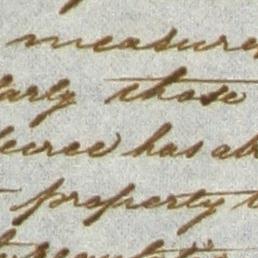 measure
early those
decree has al
property